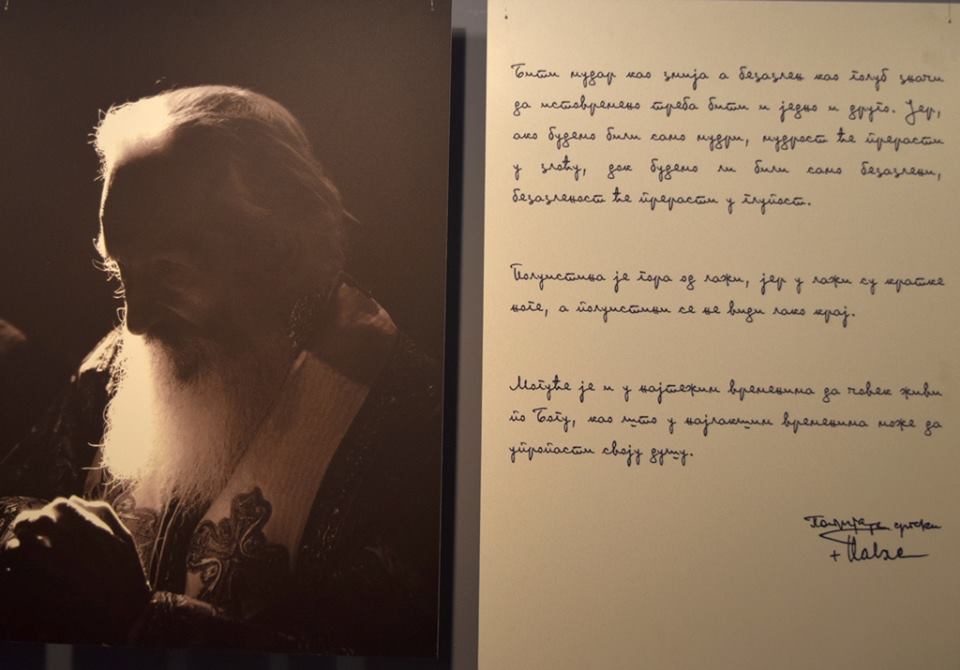 Бити мудар као змија а безазлен као голуб значи
да истовремено треба бити и једно и друго. Јер,
ако будемо били само мудри, мудрост ће прерасти
у злоћу, док будемо ли били само безазлени,
безазленост ће прерасти у глупост.
Полуистина је гора од лажи, јер у лажи су кратке
ноге, а полуистини се не види лако крај.
Могуће је и у најтежим временима да човек живи
по Богу, као што у најлакшим временима може да
упропасти своју душу.
Патријарх српски
+ Павле